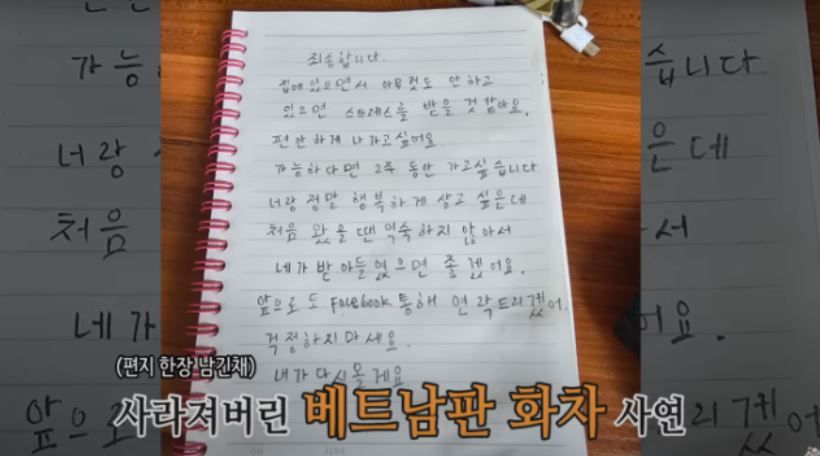 죄송합니다.
집에 있으면서 아무것도 안 하고
있으면 스트레스를 받을 것 같아요.
편안하게 나가고 싶어요
가능하다면 2주 동안 가고싶습니다
너랑 정말 행복하게 살고 싶은데
처음 왔을 땐 익숙하지 않아서
네가 받아들였으면 좋겠어요.
앞으로도 Facebook 통해 연락드리겠어.
걱정하지마세요.
내가 다시 올게요
(편지 한장 남긴채)
사라져버린 베트남판 화차 사연
가능
너랑
처음
네가
앞으로
습니다
은데
서
어요.
리겠어